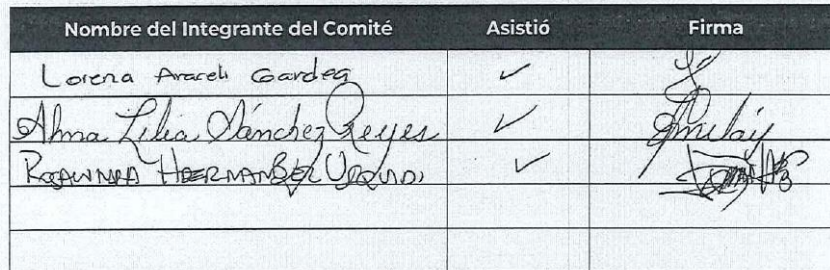 Nombre del Integrante del Comité Asistió Firma
Lorena Araceli Gardea ✓
Alma Lilia Sánchez Reyes ✓
HERNANDEZ ✓